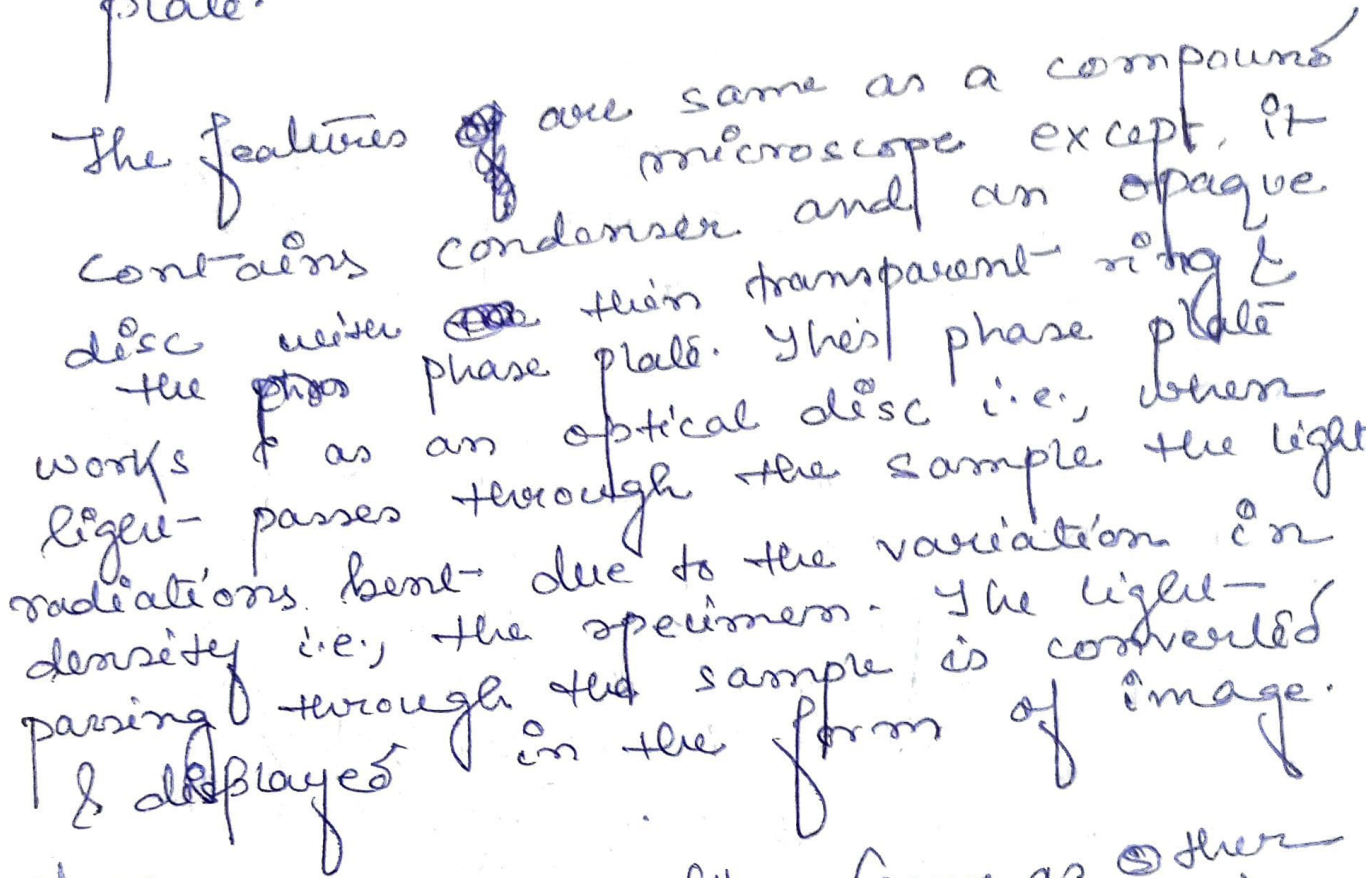 plate.
The features are same as a compound
microscope except, it
contains condenser and an opaque
disc with thin transparent ring &
the phase plate. This phase plate
works as an optical disc i.e., when
light passes through the sample the light
radiations bent due to the variation in
density i.e., the specimen. The light
passing through the sample is converted
& displayed in the form of image.
as other